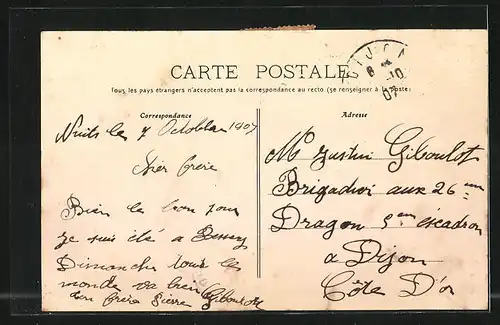 CARTE POSTALE
Tous les pays étrangers n'acceptent pas la correspondance au recto (se renseigner à la poste)
Correspondance
Nuits le 7 Octobbre 1907
chier frère
Bien le bon jour
je suis été a Bessey
Dimanche tous le
monde va bien
ton frère Pierre Giboulot
Adresse
M Justin Giboulot
Brigadier aux 26 em
Dragon 5 em éscadron
a Dijon
Côte D'or
DIJON
8 10
07